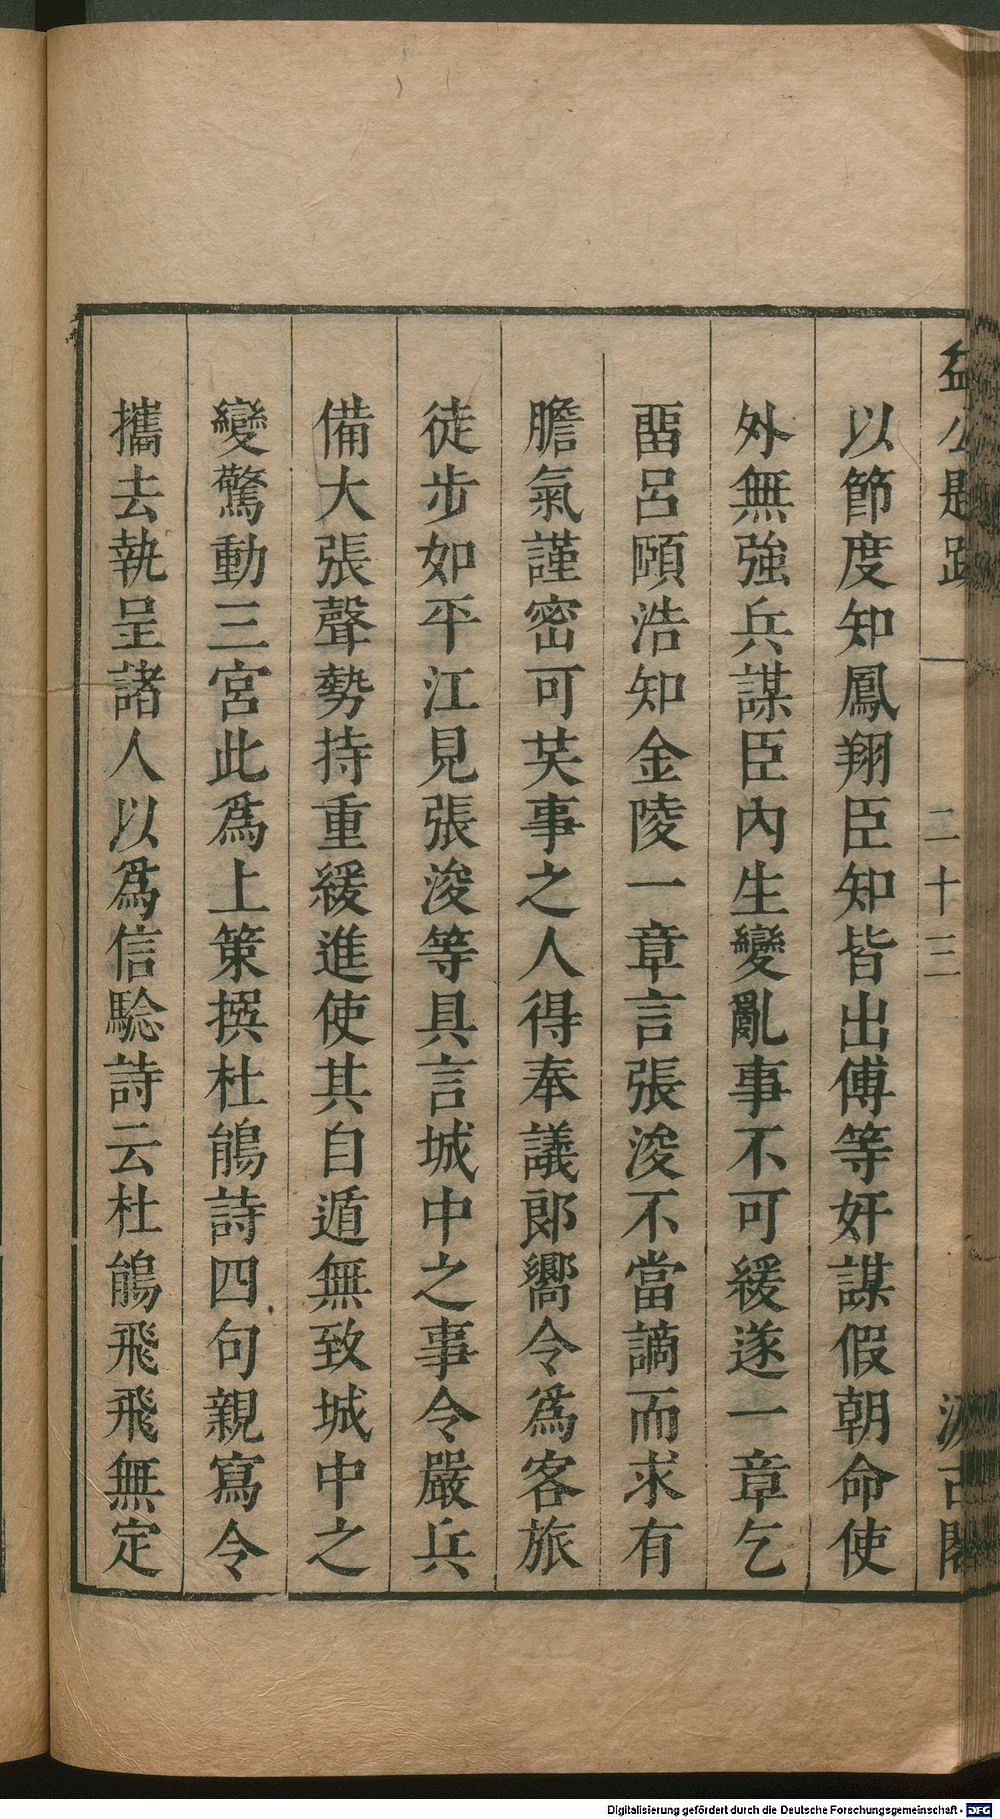 益公題跋 二十三 汲古閣
以節度知鳳翔臣知皆出傅等奸謀假朝命使
外無強兵謀臣內生變亂事不可緩遂一章乞
畱呂頤浩知金陵一章言張浚不當謫而求有
膽氣謹密可芺事之人得奉議郎嚮令為客旅
徒步如平江見張浚等具言城中之事令嚴兵
備大張聲勢持重緩進使其自遁無致城中之
變驚動三宮此爲上策撰杜鵑詩四句親寫令
攜去執呈諸人以爲信驗詩云杜鵑飛飛無定
Digitalisierung gefördert durch die Deutsche Forschungsgemeinschaft - DFG